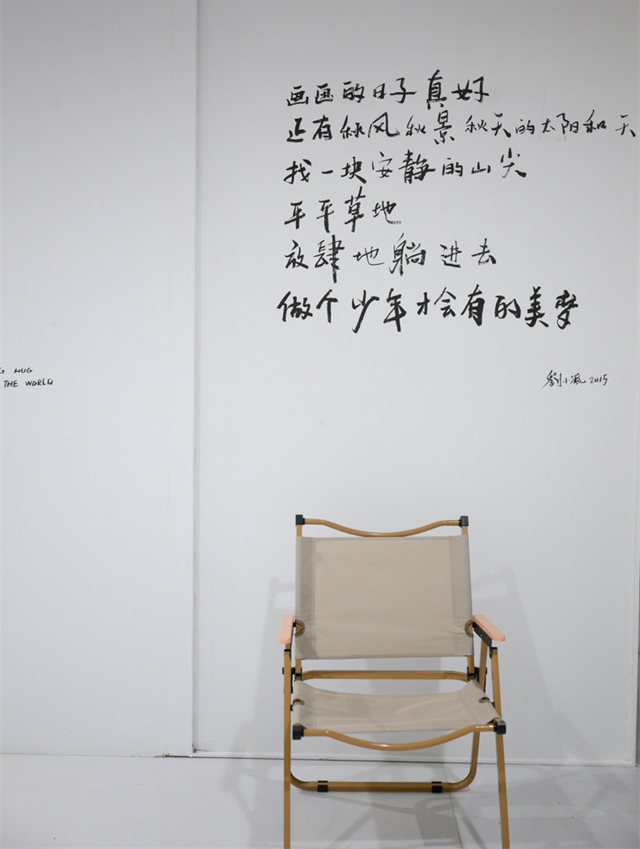 画画的日子真好
还有秋风秋景秋天的太阳和天
找一块安静的山尖
平平草地
放肆地躺进去
做个少年才会有的美梦
劉小 2015
HUG
THE WORLD